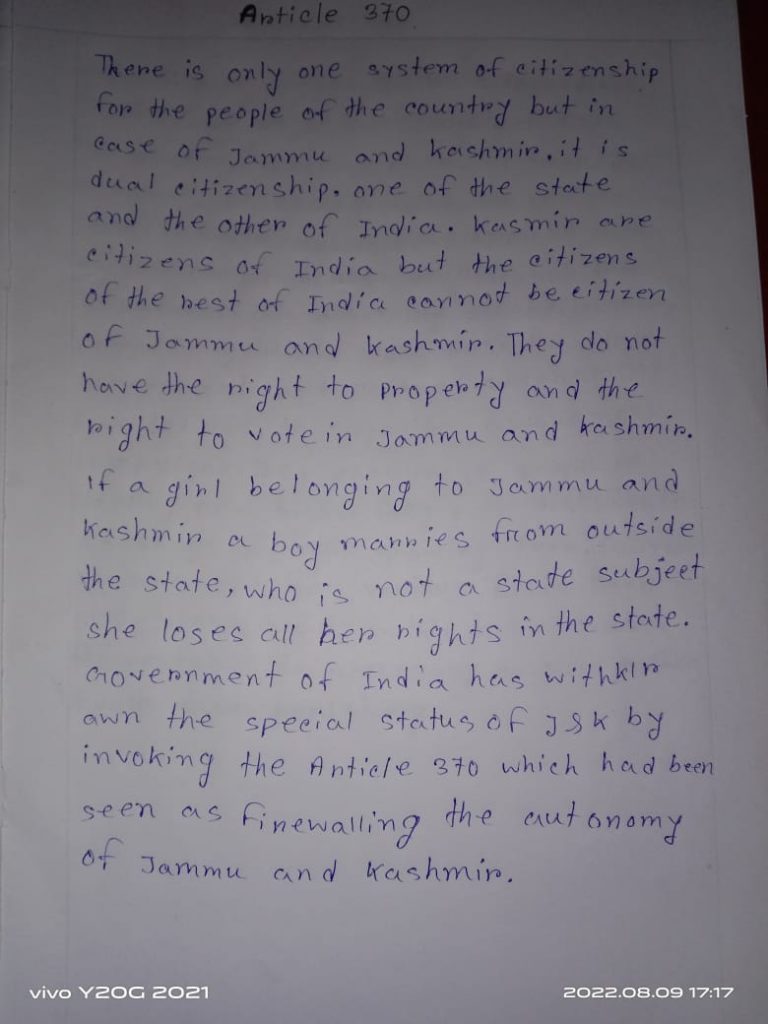 Article 370
There is only one system of citizenship
for the people of the country but in
case of Jammu and Kashmir, it is
dual citizenship. one of the state
and the other of India. Kasmir are
citizens of India but the citizens
of the rest of India cannot be citizen
of Jammu and Kashmir. They do not
have the right to property and the
right to vote in Jammu and Kashmir.
If a girl belonging to Jammu and
Kashmir a boy marries from outside
the state, who is not a state subject
she loses all her rights in the state.
Government of India has
awn the special status of J&K by
invoking the Article 370 which had been
seen as firewalling the autonomy
of Jammu and Kashmir.
vivo Y20G 2021
2022.08.09 17:17